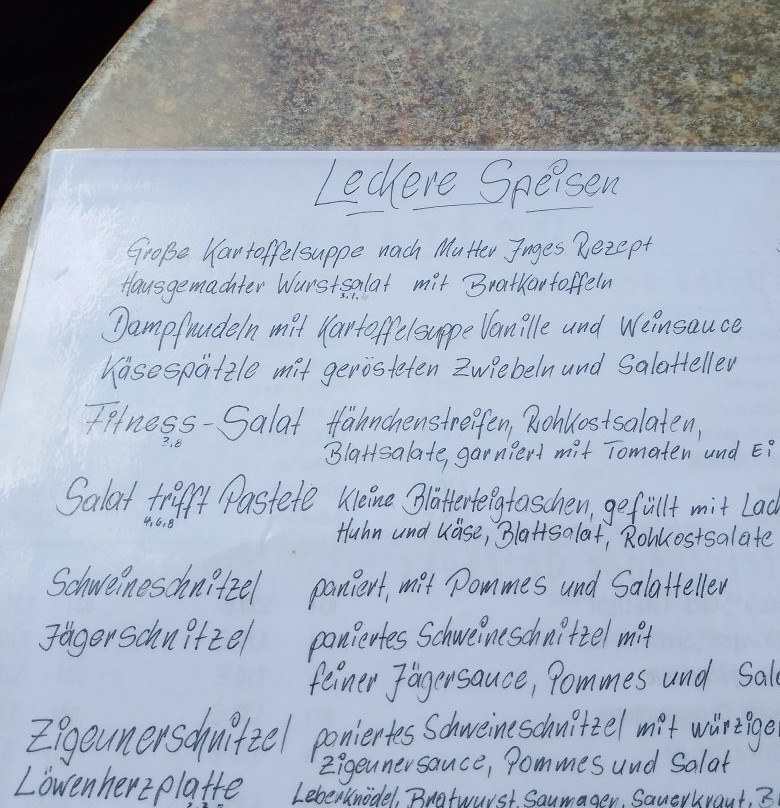 Leckere Speisen
Große Kartoffelsuppe nach Mutter Inges Rezept
Hausgemachter Wurstsalat mit Bratkartoffeln
Dampfnudeln mit Kartoffelsuppe Vanille und Weinsauce
Käsespätzle mit gerösteten Zwiebeln und Salatteller
Fitness-Salat Hähnchenstreifen, Rohkostsalaten,
Blattsalate, garniert mit Tomaten und Ei
Salat trifft Pastete Kleine Blätterteigtaschen, gefüllt mit Lac
4,6,8
Huhn und Käse, Blattsalat, Rohkostsalate
Schweineschnitzel paniert, mit Pommes und Salatteller
Jägerschnitzel paniertes Schweineschnitzel mit
feiner Jägersauce, Pommes und Sal
Zigeunerschnitzel paniertes Schweineschnitzel mit würzige
Zigeunersauce, Pommes und Salat
Löwenherzplatte Leberknödel, Bratwurst, Saumagen, Sauerkraut,